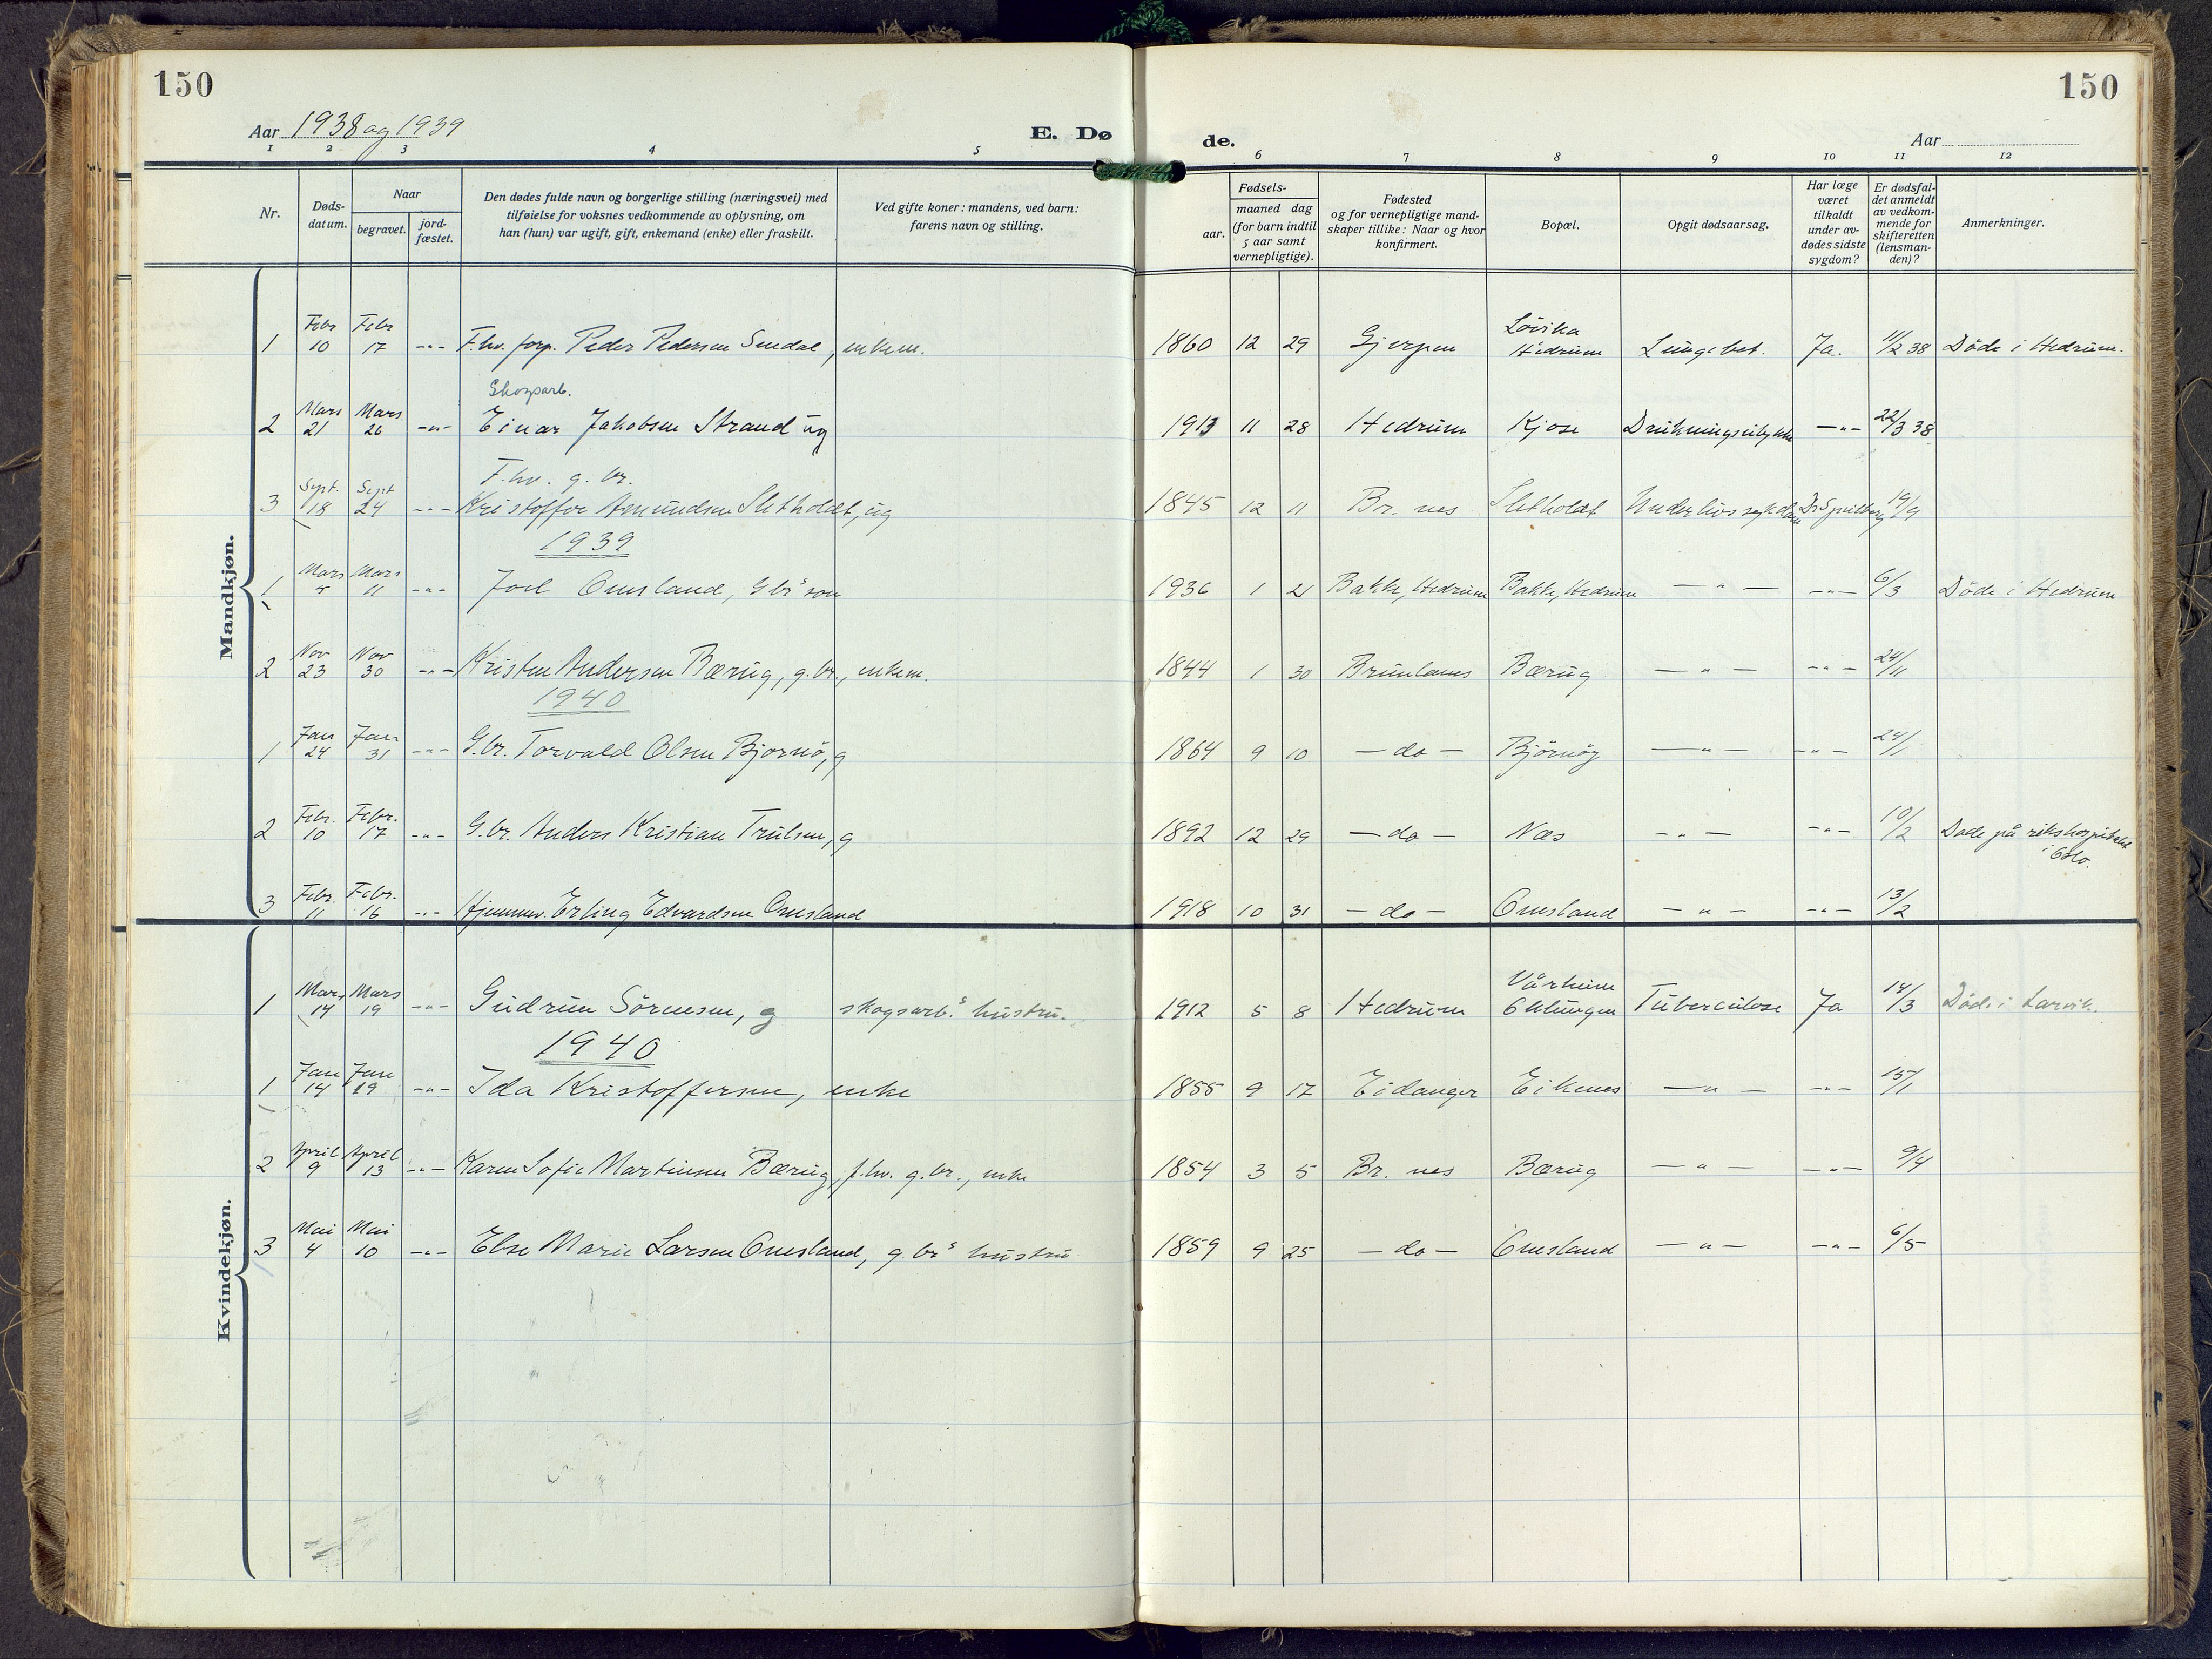 150
150
Aar 1938 og 1939
E. Dø
de.
Aar
1 2 3 4 5 6 7 8 9 10 11 12
Nr.
Døds-
datum.
Naar
begravet.
jord-
fæstet.
Den dødes fulde navn og borgerlige stilling (næringsvei) med
tilføielse for voksnes vedkommende av oplysning, om
han (hun) var ugift, gift, enkemand (enke) eller fraskilt.
Ved gifte koner: mandens, ved barn:
farens navn og stilling.
Fødsels-
aar.
maaned dag
(for barn indtil
5 aar samt
vernepligtige).
Fødested
og for vernepligtige mand-
skaper tillike: Naar og hvor
konfirmert.
Bopæl.
Opgit dødsaarsag.
Har læge
været
tilkaldt
under av-
dødes sidste
sygdom?
Er dødsfal-
det anmeldt
av vedkom-
mende for
skifteretten
(lensman-
den)?
Anmerkninger.
Mandkjøn.
Febr Febr Lövika
1 10 17 -"- F.hv. forp. Peder Pedersen Sendal, enkem. 1860 12 29 Gjerpen Hedrum Lungebet. Ja. 11/2 38 Döde i Hedrum.
Skogsarb.
Mars Mars
2 21 26 -"- Einar Jakobsen Strand ug 1913 11 28 Hedrum Kjose Drukningsulykke -"- 22/3 38
F.hv. g.br.
Sept. Sept
3 18 24 -"- Kristoffer Amundsen Sletholdt, ug 1845 12 11 Br. nes Sletholdt Underlivssykdom Dr. 19/9
1939
Mars Mars
1 5 11 -"- Joel Omsland, Gbr's son 1936 1 21 Bakke, Hedrum Bakke, Hedrum -"- -"- 6/3 Döde i Hedrum
Nov Nov
2 23 30 -"- Kristen Andersen Bærug, g.br., enkem. 1844 1 30 Brunlanes Bærug -"- -"- 24/11
1940
Jan Jan
1 24 31 -"- G.br. Torvald Olsen Bjørnö, g 1864 9 10 -do- Björnöy -"- -"- 24/1
Febr. Febr.
2 10 17 -"- G.br. Anders Kristian Trulsen, g 1892 12 29 -do- Næs -"- -"- 10/2 Døde på rikshospitalet
i Oslo.
Febr. Febr.
3 11 16 -"- Hjemmev. Erling Edvardsen Omsland 1918 10 31 -do- Omsland -"- -"- 13/2
Kvindekjøn.
Mars Mars Vårheim
1 14 19 -"- Gudrun Sörensen, g skogsarb.s hustru. 1912 5 8 Hedrum Eklungen Tuberculose Ja 14/3 Döde i Larvik.
1940
Jan Jan
1 14 19 -"- Ida Kristoffersen, enke 1855 9 17 Eidanger Eikenes -"- -"- 15/1
April April
2 9 13 -"- Karen Sofie Martinsen Bærug, f.hv. g.br., enke 1854 3 5 Br. nes Bærug -"- -"- 9/4
Mai Mai
3 4 10 -"- Else Marie Larsen Omsland, g.br's hustru 1859 9 25 -do- Omsland -"- -"- 6/5